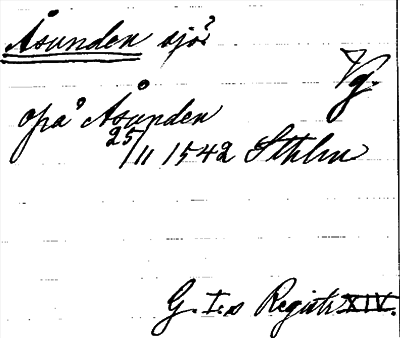 Åsunden sjö
Vg.
opå Åsunden
25/11 1542 Sthlm
G. I:s Registr. XIV.